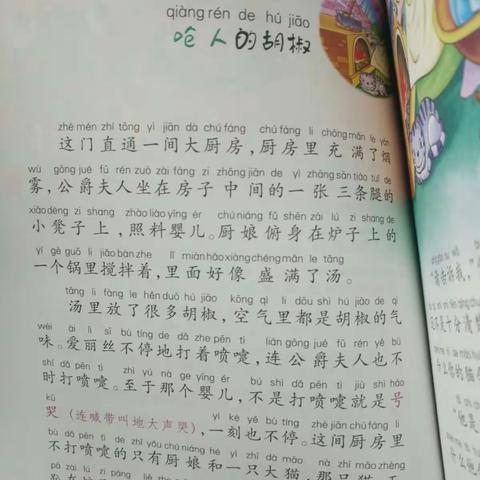 qiàng rén de hú jiāo
呛人的胡椒
zhè mén zhí tōng yì jiān dà chú fáng chú fáng li chōng mǎn le yān
这门直通一间大厨房，厨房里充满了烟
wù gōng jué fū rén zuò zài fáng zi zhōng jiān de yì zhāng sān tiáo tuǐ de
雾，公爵夫人坐在房子中间的一张三条腿的
xiǎo dèng zi shang zhào liào yīng ér chú niáng fǔ shēn zài lú zi shang de
小凳子上，照料婴儿。厨娘俯身在炉子上的
yí gè guō li jiǎo bàn zhe lǐ miàn hǎo xiàng chéng mǎn le tāng
一个锅里搅拌着，里面好像盛满了汤。
tāng li fàng le hěn duō hú jiāo kōng qì li dōu shì hú jiāo de qì
汤里放了很多胡椒，空气里都是胡椒的气
wèi ài lì sī bù tíng de dǎ zhe pēn tì lián gōng jué fū rén yě bù
味。爱丽丝不停地打着喷嚏，连公爵夫人也不
shí dǎ pēn tì zhì yú nà ge yīng ér bú shì dǎ pēn tì jiù shì háo
时打喷嚏。至于那个婴儿，不是打喷嚏就是号
kū yí kè yě bù tíng zhè jiān chú fáng li
哭（连喊带叫地大声哭），一刻也不停。这间厨房里
bù dǎ pēn tì de zhǐ yǒu chú niáng hé yì zhī dà māo nà zhī māo zhèng
不打喷嚏的只有厨娘和一只大猫，那只猫正
pā zài lú zi páng
“请告诉我，”